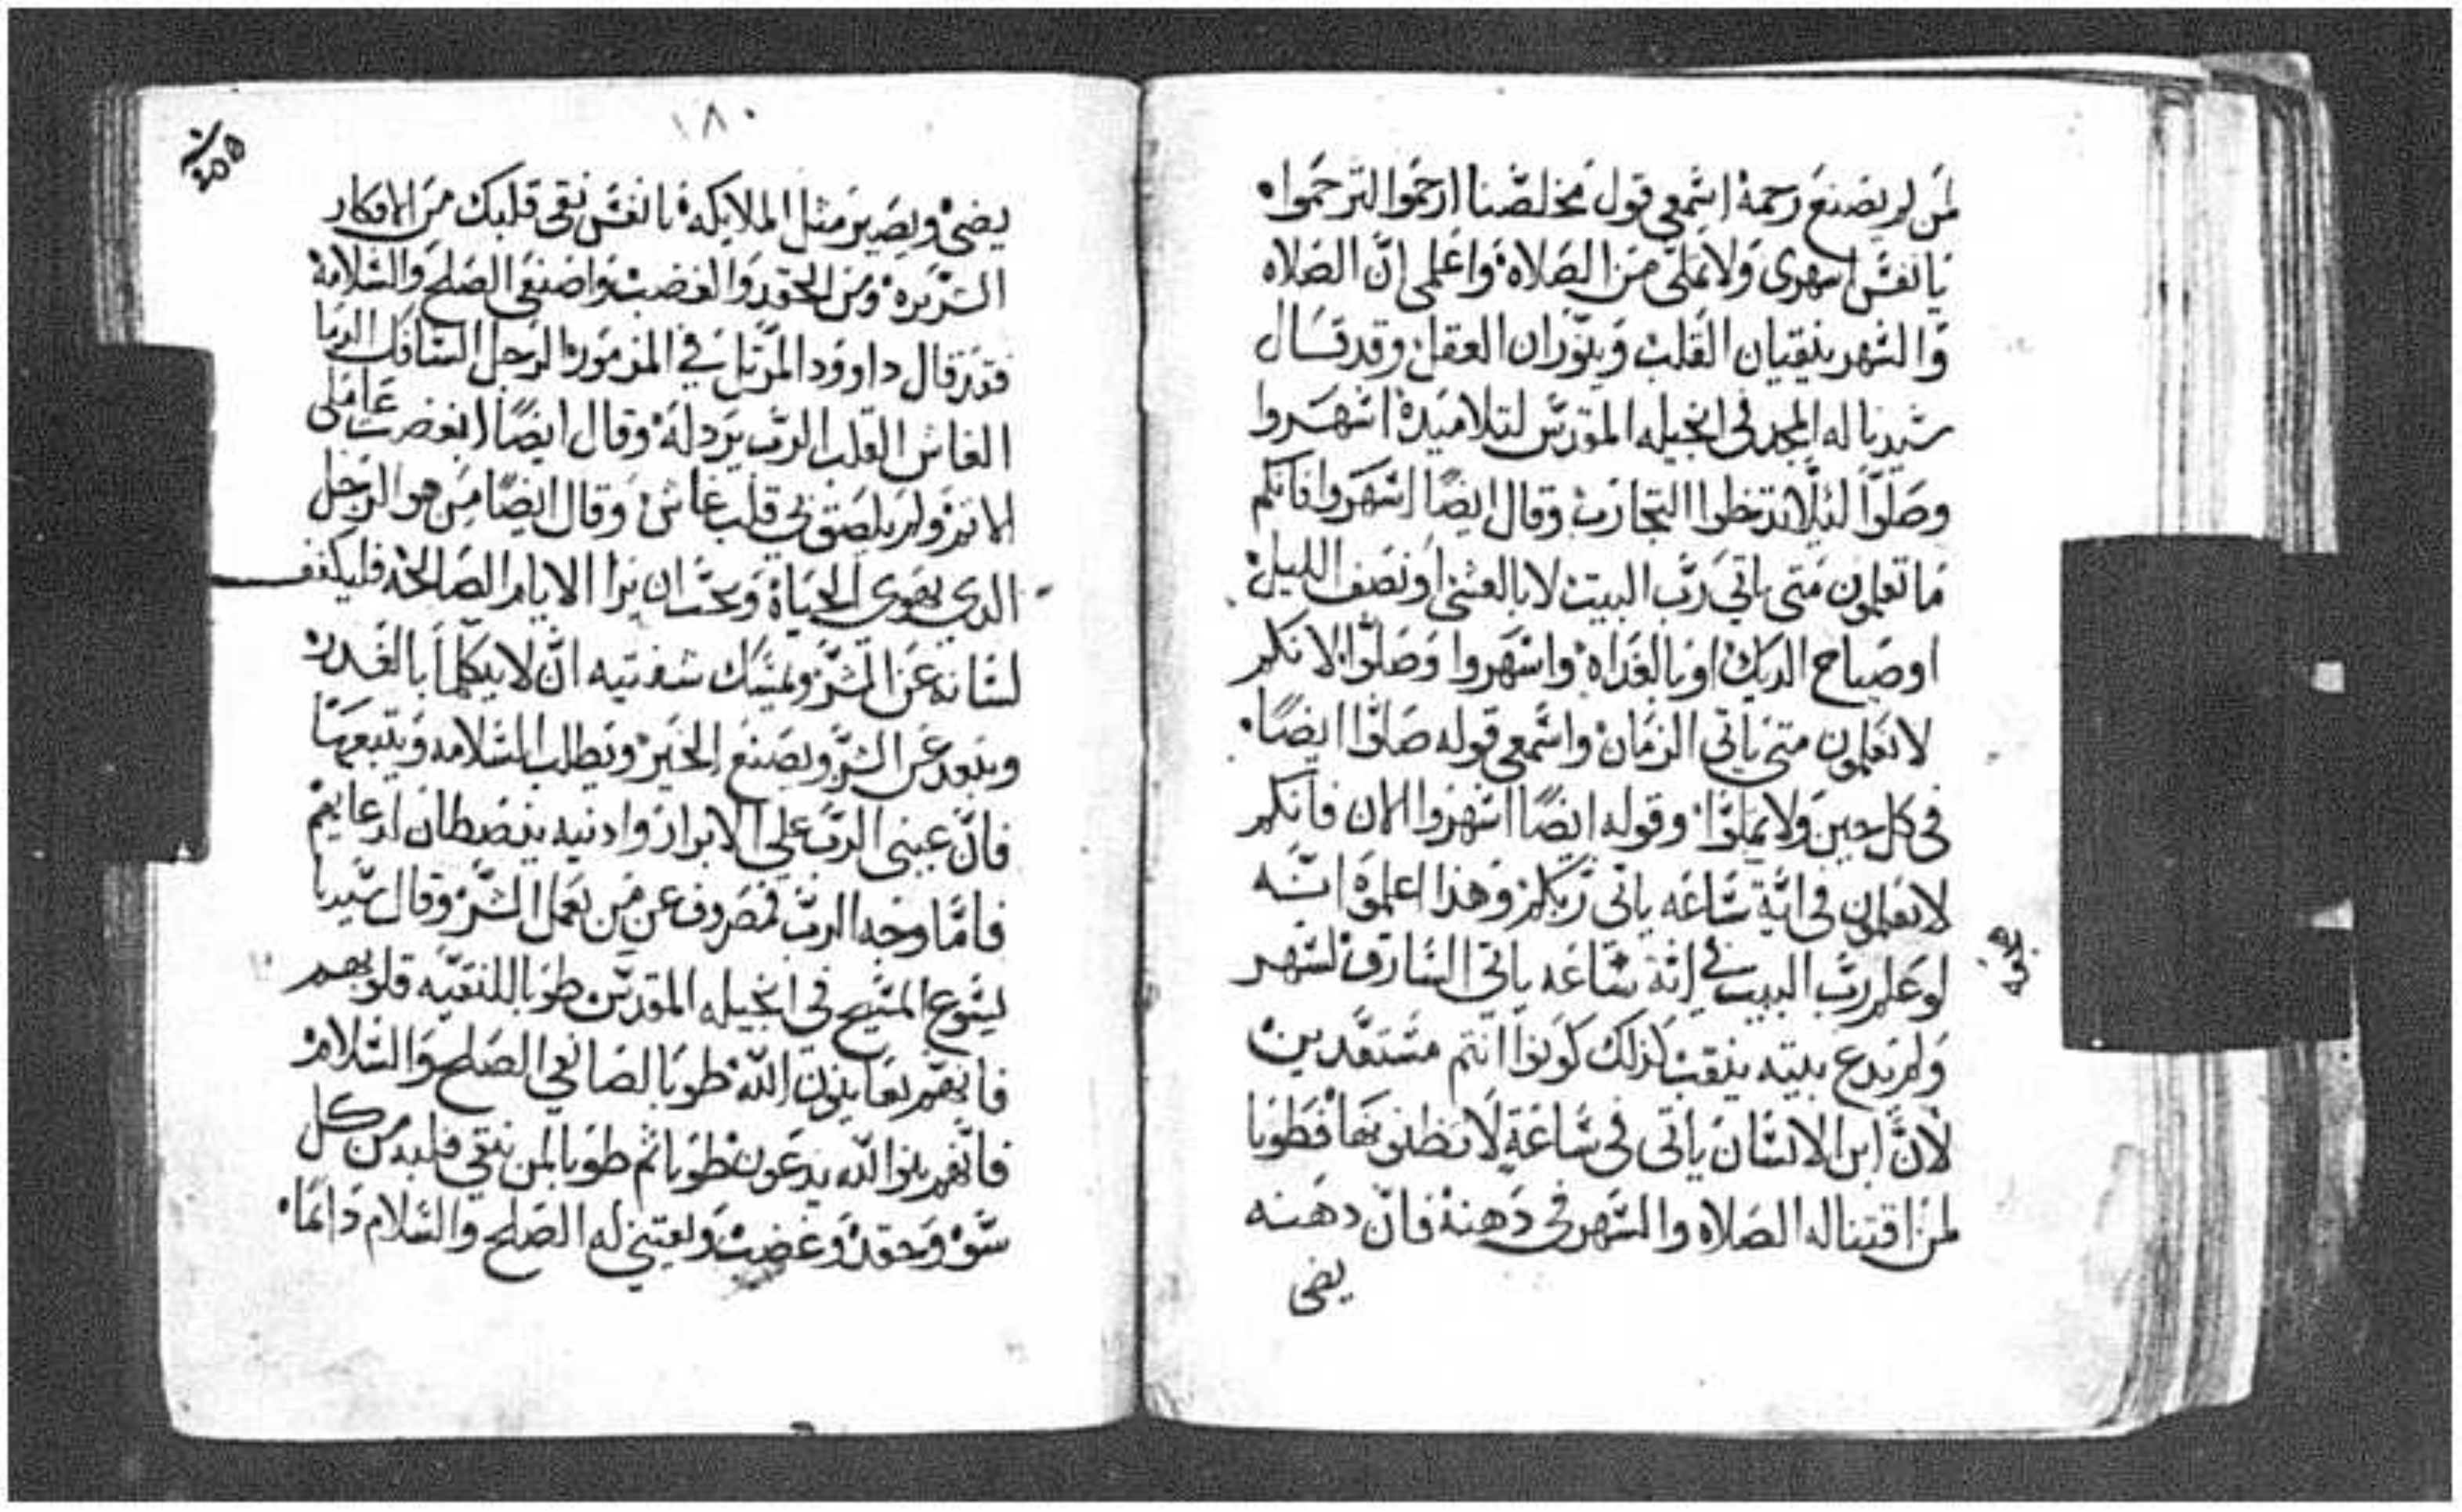 لمن لم يصنع رحمة اسمعي قول مخلصنا ارحموا لترحموا
يا نفس اسهري ولا تملي من الصلاه واعلمي ان الصلاه
والسهر ينقيان القلب وينوران العقل وقد قال
سيدنا له المجد في انجيله المقدس لتلاميده اسهروا
وصلوا لئلا تدخلوا التجارب وقال ايضًا اسهروا فانكم
ما تعلمون متى ياتي رب البيت لا بالعشي او نصف الليل
او صياح الديك او بالغداه واسهروا وصلوا لانكم
لا تعلمون متى ياتي الزمان واسمعي قوله صلوا ايضًا
في كل حين ولا تملوا وقوله ايضًا اسهروا الان فانكم
لا تعلمون في اية ساعه ياتي ربكم وهذا اعلموه انه
لو علم رب البيت في اية ساعه ياتي السارق لسهر
ولم يدع بيته ينقب كذلك كونوا انتم مستعدين
لان ابن الانسان ياتي في ساعة لا تظنونها فطوبا
لمن اقتنا له الصلاه والسهر في دهنه فان دهنه
يضي
١٨٠
٢٥٥
يضي ويصير مثل الملايكه يا نفس نقي قلبك من الافكار
الشريره ومن الحقد والغضب واصنعي الصلح والسلامة
فقد قال داوود المرتل في المزمور الرجل السافك الدما
الغاش القلب الرب يردله وقال ايضًا ابغضت عاملي
الاثم ولم يلصق بي قلب غاش وقال ايضًا من هو الرجل
الدي يهوى الحياة ويحب ان يرا الايام الصالحه فليكفف
لسانه عن الشر ويمسك شفتيه ان لا يتكلما بالغدر
ويبعد عن الشر ويصنع الخير ويطلب السلامه ويتبعها
فان عيني الرب على الابرار وادنيه ينصطان لدعايهم
فاما وجه الرب فمصروف عن من يعمل الشر وقال سيدنا
يسوع المسيح في انجيله المقدس طوبا للنقيه قلوبهم
فانهم يعاينون الله طوبا لصانعي الصلح والسلام
فانهم بنوا الله يدعون طوبا ثم طوبا لمن نقي قلبه من كل
سو وحقد وغضب ويقتني له الصلح والسلام دايمًا